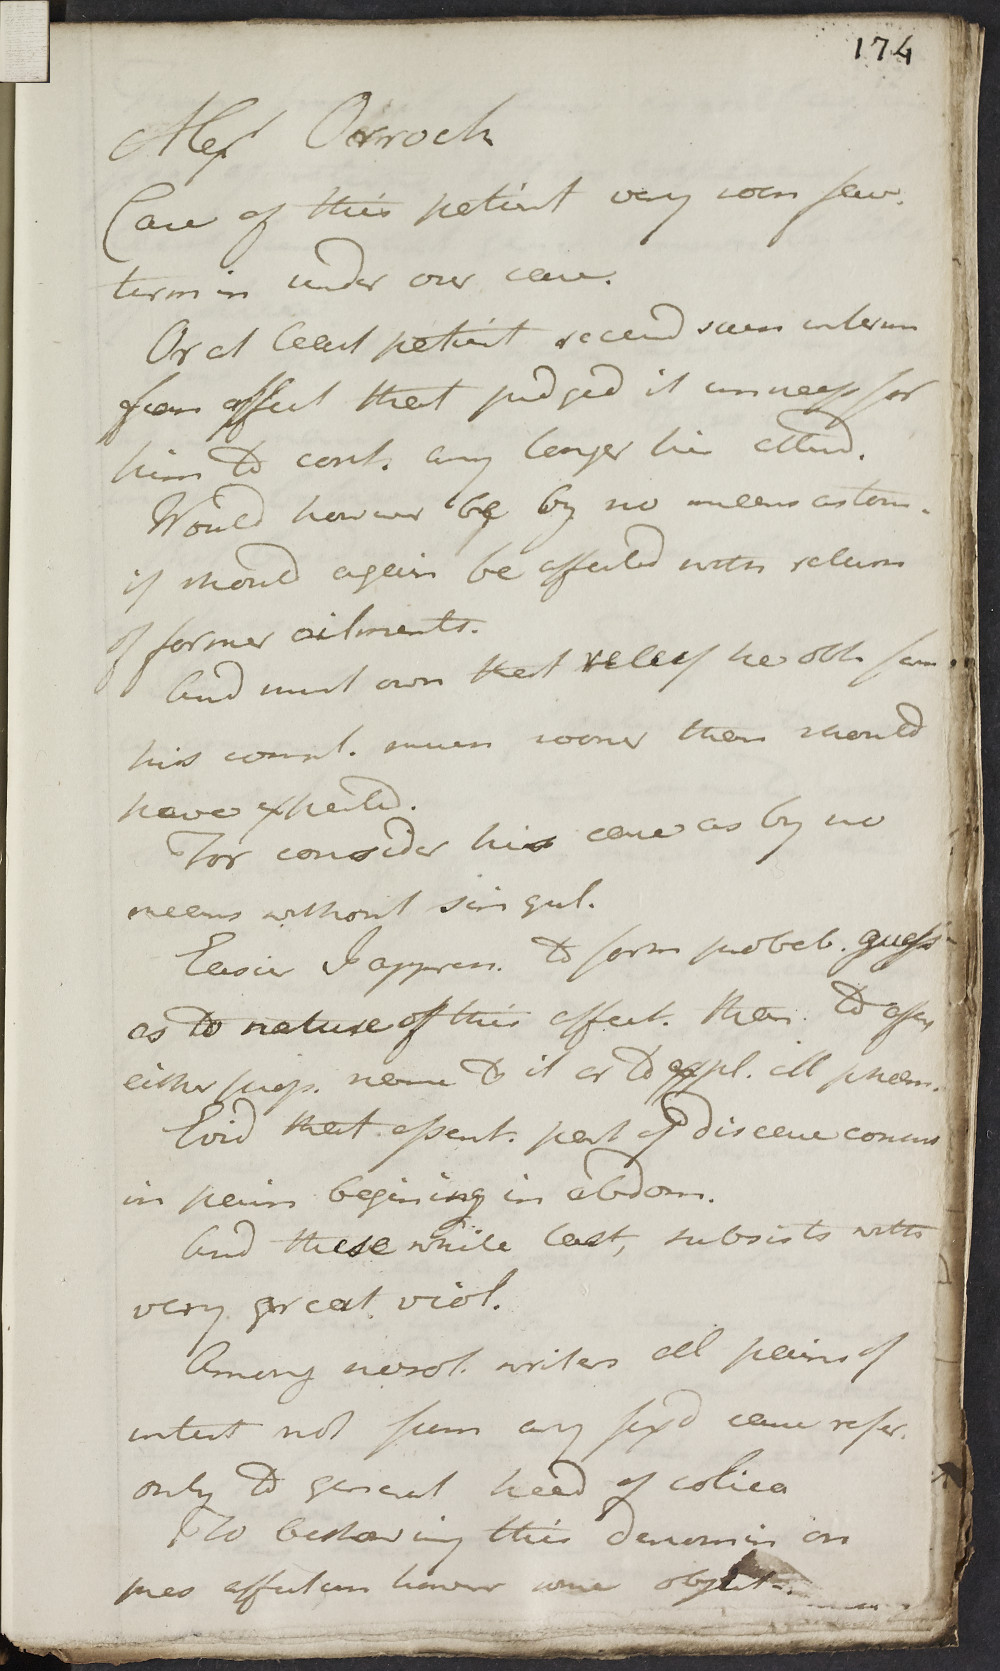 174
Alexr Orroch
Case of this patient very soon fav.
termin under our care.
Or at least patient receivd such interm
from affect that judged it unnecess for
him to cont. any longer his attend.
Would however be by no means aston.
if should again be affected with return
of former ailments.
And must own that releif he obt. from
his compl. much sooner than should
have expected.
For consider his case as by no
means without singul.
Easier I appreh. to form probab. guess
as to nature of this affect. than to assign
either prop. name to it or to expl. all phen.
Evid that essent. part of disease consists
in pain begining in abdom.
And these while last, subsists with
very great viol.
Among nosol. writers all pains of
intest not from any fixd cause refer.
only to general head of colica
To bestowing this denomin on
pres affection however some object.